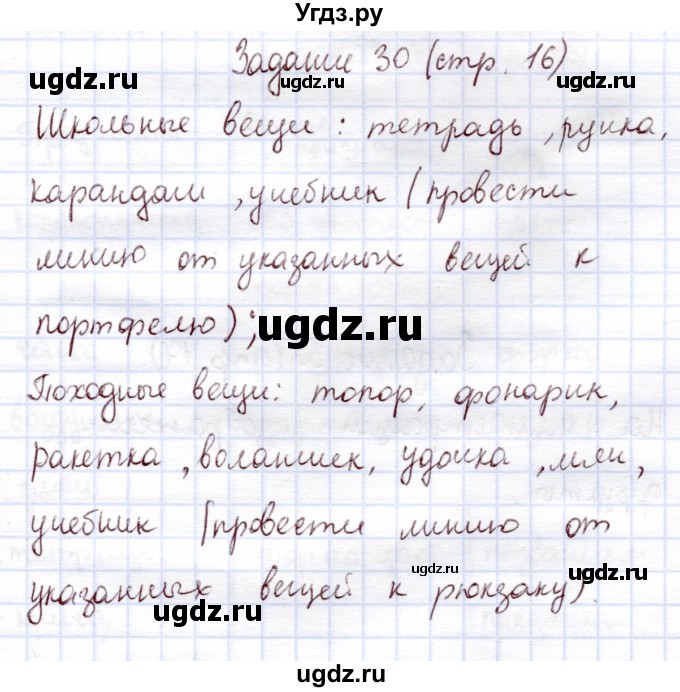 Угдз.ру
Задание 30 (стр. 16)
ugdz.ru ugdz.ru ugdz.ru
Школьные вещи: тетрадь, ручка,
карандаш, учебник (провести
ugdz.ru ugdz.ru
линию от указанных вещей к
портфелю);
ugdz.ru
Походные вещи: топор, фонарик,
ugdz.ru ugdz.ru
ракетка, воланчик, удочка, мяч,
учебник (провести линию от
указанных вещей к рюкзаку).
ugdz.ru ugdz.ru
ugdz.ru